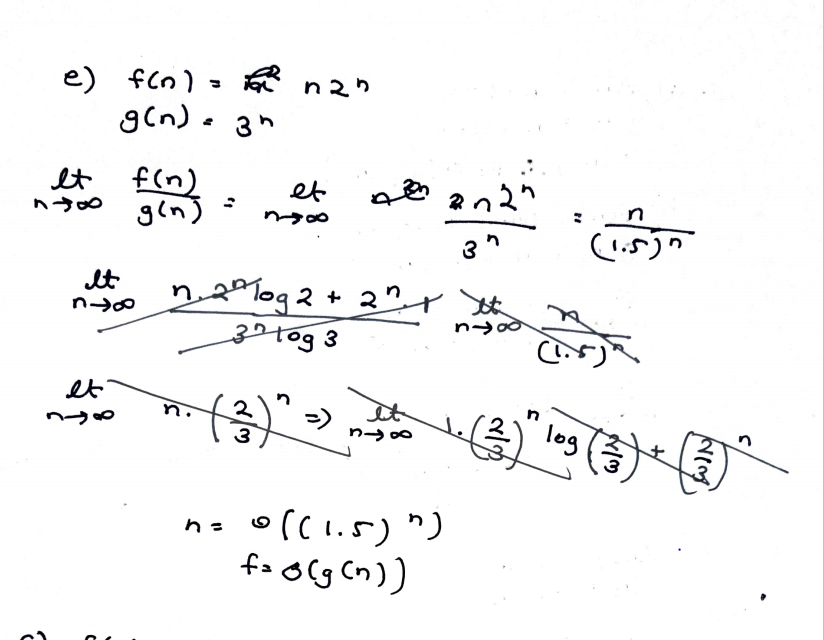 e) f(n) = n2ⁿ
g(n) = 3ⁿ
lt n→∞ f(n)/g(n) = lt n→∞ n2ⁿ/3ⁿ = n/(1.5)ⁿ
lt n→∞ (n.2ⁿ log 2 + 2ⁿ.1)/(3ⁿ log 3) lt n→∞ n/(1.5)ⁿ
lt n→∞ n.(2/3)ⁿ => lt n→∞ 1.(2/3)ⁿ log(2/3) + (2/3)ⁿ
n = o((1.5)ⁿ)
f = o(g(n))